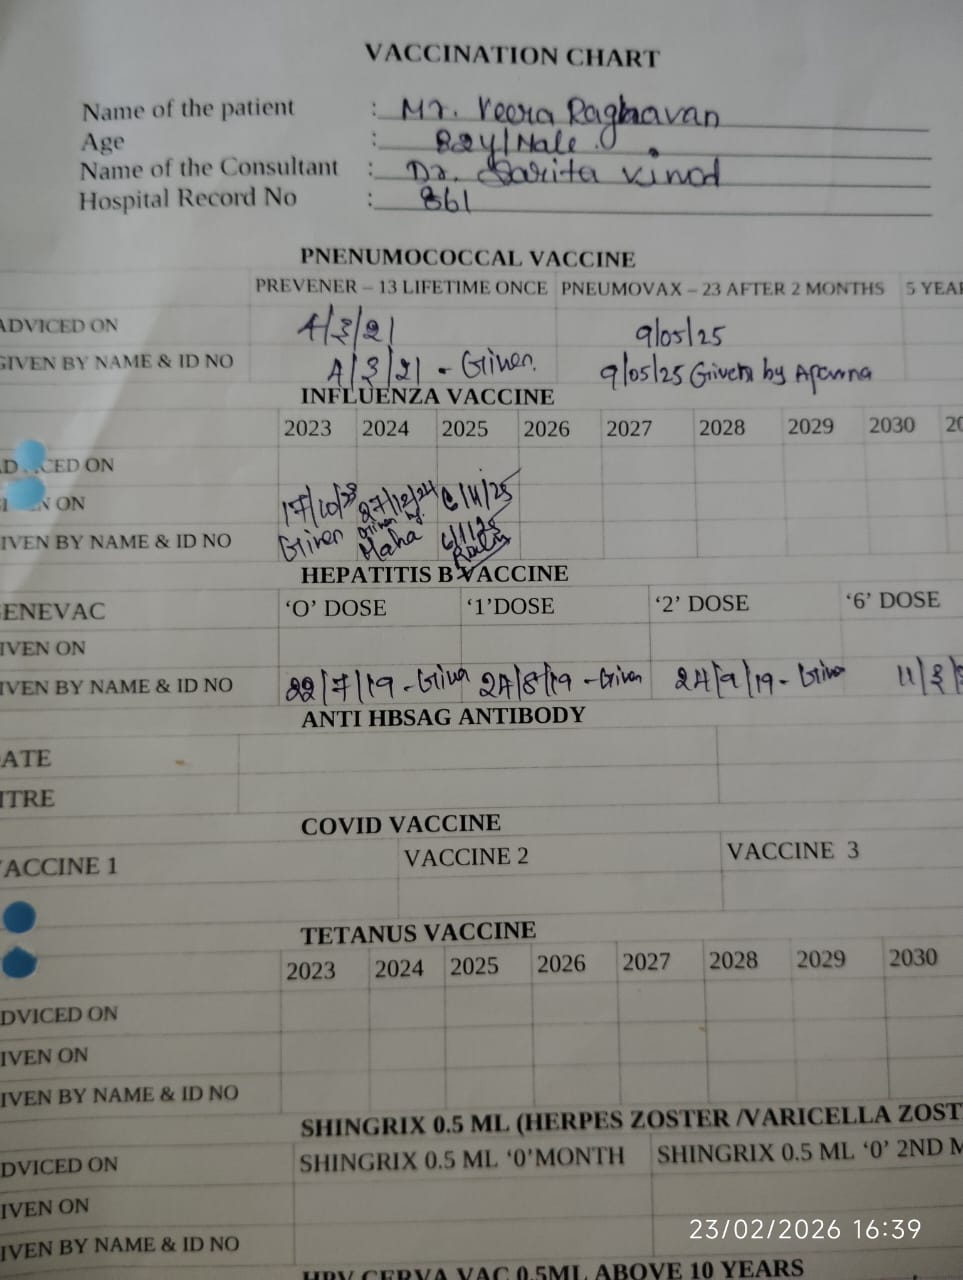 VACCINATION CHART
Name of the patient : Mr. Veera Raghavan
Age : 82y/Male
Name of the Consultant : Dr. Sarita Vinod
Hospital Record No : 861
PNENUMOCOCCAL VACCINE
PREVENER – 13 LIFETIME ONCE PNEUMOVAX – 23 AFTER 2 MONTHS 5 YEA
ADVICED ON 4/3/21 9/05/25
GIVEN BY NAME & ID NO 4/3/21 - Given. 9/05/25 Given by
INFLUENZA VACCINE
2023 2024 2025 2026 2027 2028 2029 2030 20
CED ON
N ON 17/10/23 27/12/24 6/11/25
IVEN BY NAME & ID NO Given Given by Maha 6/11/25
HEPATITIS B VACCINE
ENEVAC ‘O’ DOSE ‘1’DOSE ‘2’ DOSE ‘6’ DOSE
IVEN ON
IVEN BY NAME & ID NO 22/7/19 - Given 24/8/19 - Given 24/9/19 - Given 11/3/
ANTI HBSAG ANTIBODY
ATE
ITRE
COVID VACCINE
ACCINE 1 VACCINE 2 VACCINE 3
TETANUS VACCINE
2023 2024 2025 2026 2027 2028 2029 2030
DVICED ON
IVEN ON
IVEN BY NAME & ID NO
SHINGRIX 0.5 ML (HERPES ZOSTER /VARICELLA ZOST
DVICED ON SHINGRIX 0.5 ML ‘0’MONTH SHINGRIX 0.5 ML ‘0’ 2ND M
IVEN ON
IVEN BY NAME & ID NO
23/02/2026 16:39
HPV CERVA VAC 0.5ML ABOVE 10 YEARS